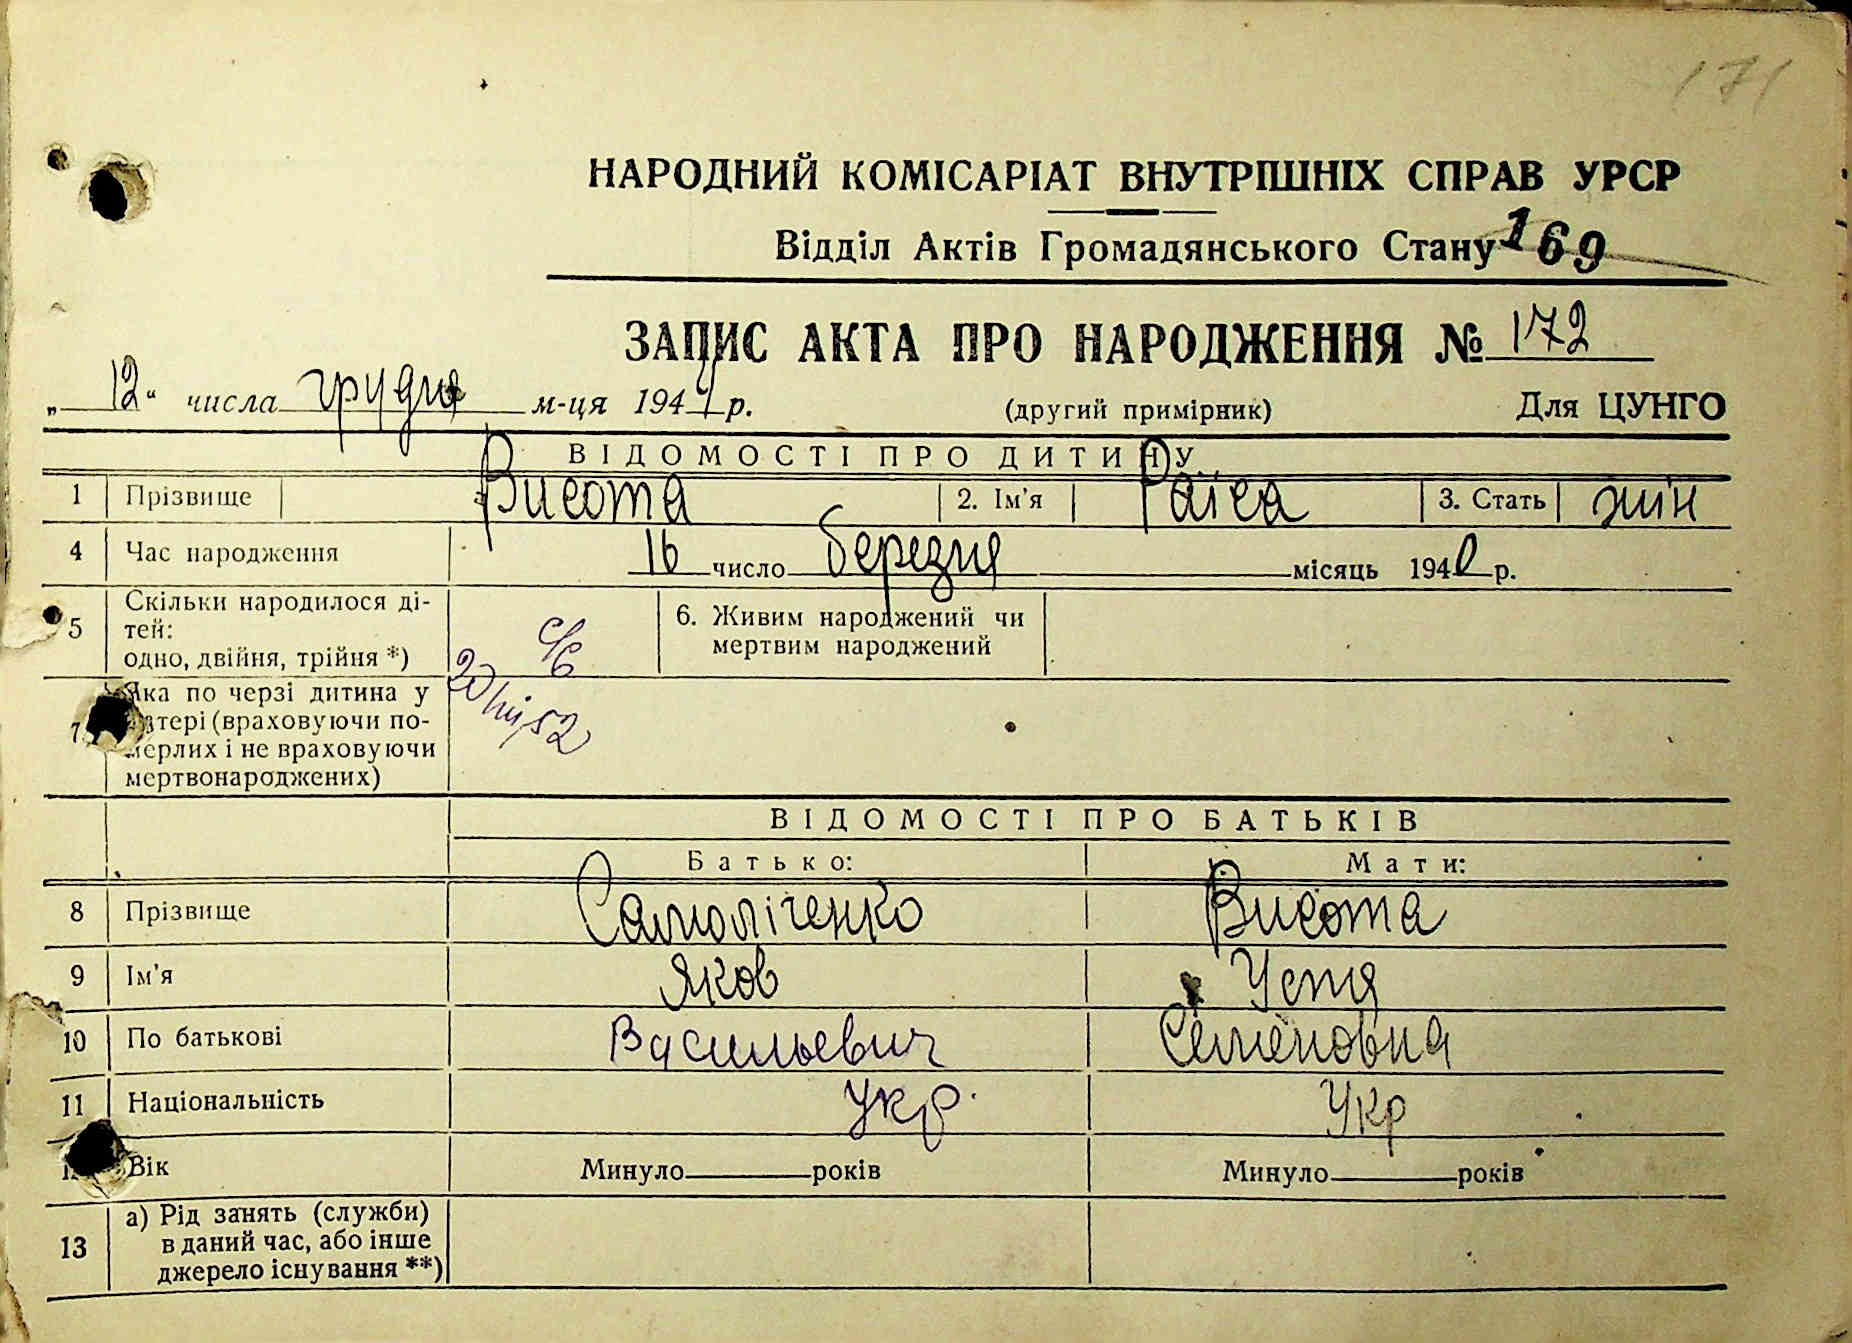 171
НАРОДНИЙ КОМІСАРІАТ ВНУТРІШНІХ СПРАВ УРСР
Відділ Актів Громадянського Стану 169
ЗАПИС АКТА ПРО НАРОДЖЕННЯ № 172
„12" числа грудня м-ця 1944 р. (другий примірник) Для ЦУНГО
ВІДОМОСТІ ПРО ДИТИНУ
1 Прізвище Висота 2. Ім'я Раїса 3. Стать жін
4 Час народження 16 число березня місяць 1940 р.
5 Скільки народилося ді-
тей:
одно, двійня, трійня *)
6. Живим народжений чи
мертвим народжений
7. Яка по черзі дитина у
матері (враховуючи по-
мерлих і не враховуючи
мертвонароджених)
ВІДОМОСТІ ПРО БАТЬКІВ
Батько: Мати:
8 Прізвище Самоліченко Висота
9 Ім'я Яков Устя
10 По батькові Васильевич Семеновна
11 Національність Укр. Укр
12 Вік Минуло років Минуло років
13 а) Рід занять (служби)
в даний час, або інше
джерело існування **)